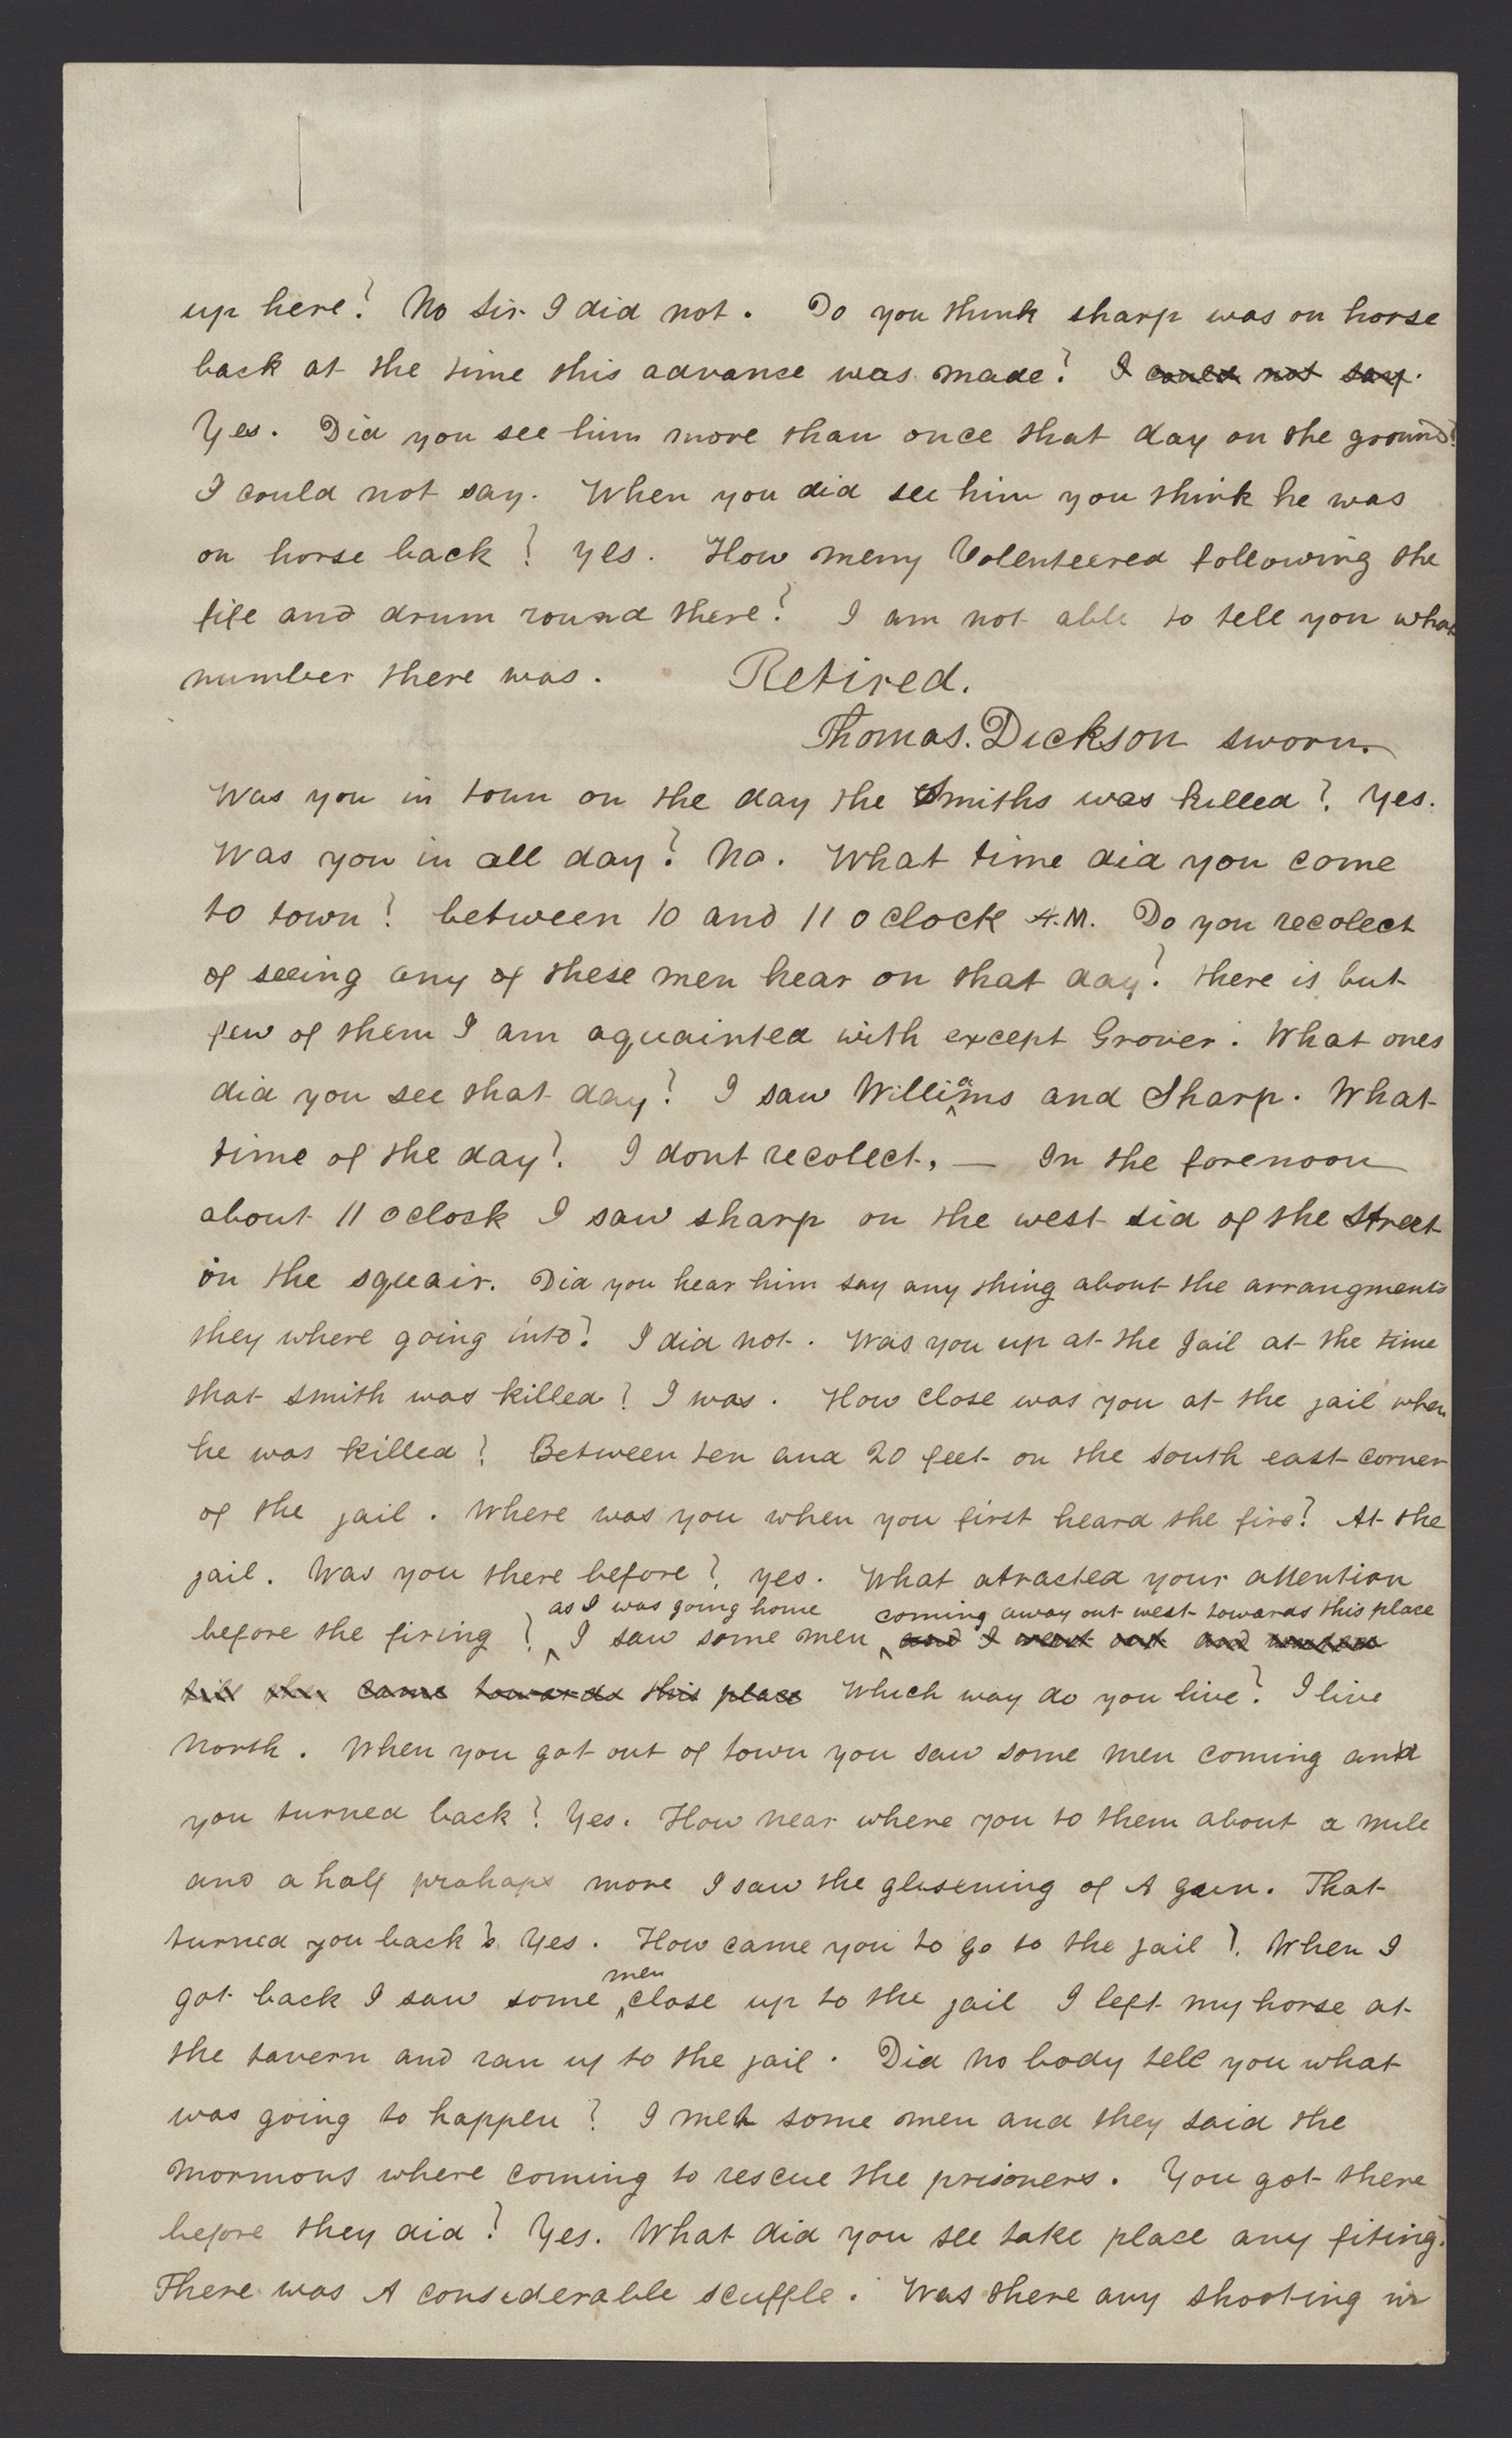 up here? No Sir I did not. Do you think sharp was on horse
back at the time this advance was made? I could not say.
Yes. Did you see him more than once that day on the ground?
I could not say. When you did see him you think he was
on horse back? yes. How meny Volenteered following the
fife and drum round there? I am not able to tell you what
number there was. Retired.
Thomas. Dickson sworn.
Was you in town on the day the Smiths was killed? Yes.
Was you in all day? No. What time did you come
to town? between 10 and 11 o clock A.M. Do you recolect
of seeing any of these men hear on that day? there is but
few of them I am aquainted with except Grover. What ones
did you see that day? I saw Williams and Sharp. What
time of the day? I dont recolect, — In the forenoon
about 11 oclock I saw sharp on the west sid of the Street
in the squair. Did you hear him say any thing about the arrangments
they where going into? I did not. Was you up at the Jail at the time
that smith was killed? I was. How close was you at the jail when
he was killed? Between ten and 20 feet on the south east corner
of the jail. Where was you when you first heard the fire? At the
jail. Was you there before? yes. What atracted your attention
as I was going home coming away out west towards this place
before the firing? I saw some men and I went out and
till they came towards this place Which way do you live? I live
North. When you got out of town you saw some men coming and
you turned back? Yes. How near where you to them about a mile
and a half prahaps more I saw the glisening of A gun. That
turned you back? Yes. How came you to go to the jail? When I
men
got back I saw some close up to the jail I left my horse at
the tavern and ran up to the jail. Did no body tell you what
was going to happen? I met some men and they said the
mormons where coming to rescue the prisoners. You got there
before they did? Yes. What did you see take place any fiting?
There was A considerable scuffle. Was there any shooting in